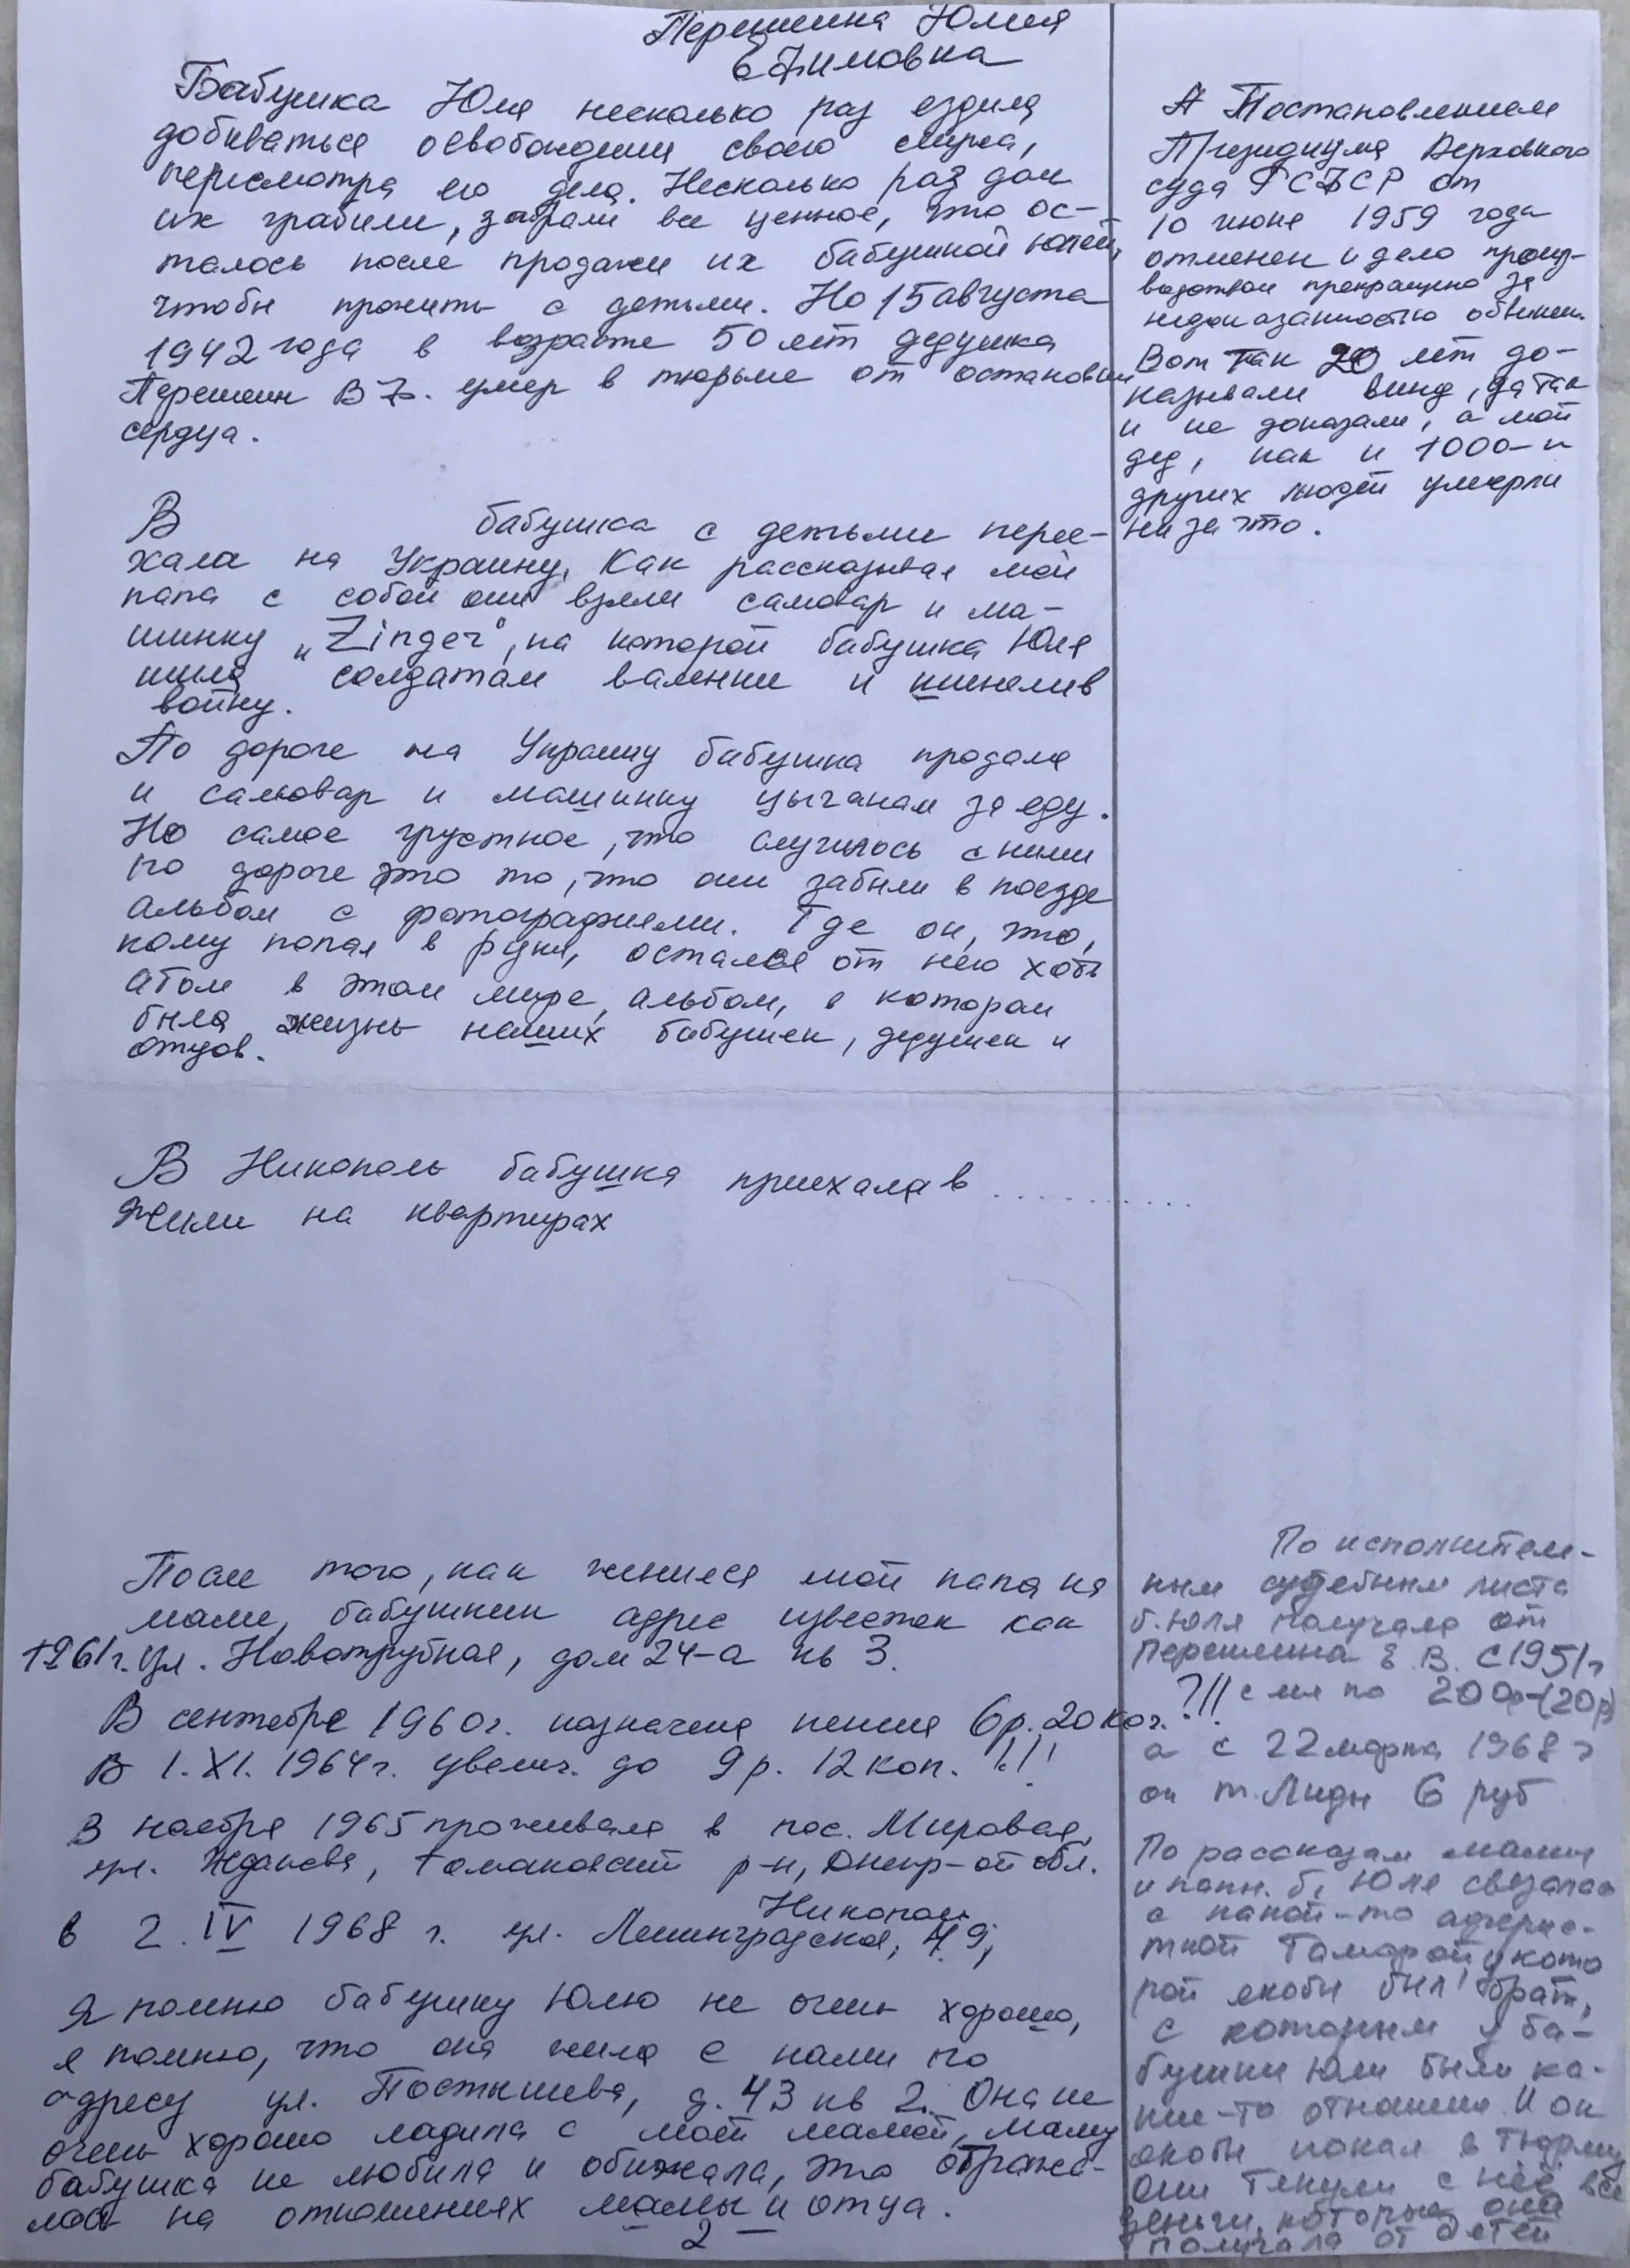 Перешина Юлия
Ефимовна
Бабушка Юля несколько раз ездила
добиваться освобождения своего мужа,
пересмотра его дела. Несколько раз дом
их грабили, забрали все ценное, что ос-
талось после продажи их бабушкой Юлей,
чтобы прожить с детьми. Но 15 августа
1942 года в возрасте 50 лет дедушка
Перешеин В Ф. умер в тюрьме от остановки
сердца.
В бабушка с детьми перее-
хала на Украину. Как рассказывал мой
папа с собой они взяли самовар и ма-
шинку „Zinger", на которой бабушка Юля
шила солдатам валенки и шинели в
войну.
По дороге на Украину бабушка продала
и самовар и машинку цыганам за еду.
Но самое грустное, что случилось с ними
по дороге это то, что они забыли в поезде
альбом с фотографиями. Где он, что,
кому попал в руки, остался от него хоть
атом в этом мире, альбом, в котором
была жизнь наших бабушек, дедушек и
отцов.
В Никополь бабушка приехала в ..........
Жили на квартирах
После того, как женился мой папа на
маме, бабушкин адрес известен как
1961г. ул. Новотрубная, дом 24-а кв 3.
В сентябре 1960г. назначена пенсия 6р. 20 коп. ?!!
В 1. XI. 1964г. увелич. до 9р. 12 коп. !!!
В ноябре 1965 проживала в пос. Мировая,
ул. Жданова, Томаковский р-н, Днепр-ой обл.
Никополь
в 2. IV 1968 г. ул. Ленинградская, 49,
Я помню бабушку Юлю не очень хорошо,
я помню, что она жила с нами по
адресу ул. Постышева, д. 43 кв 2. Она не
очень хорошо ладила с моей мамой, маму
бабушка не любила и обижала, это отража-
лось на отношениях мамы и отца.
2
А Постановлением
Президиума Верховного
суда РСФСР от
10 июня 1959 года
отменен и дело произ-
водством прекращено за
недоказанностью обвинен.
Вот так 20 лет до-
казывали вину, да так
и не доказали, а мой
дед, как и 1000-и
других людей умерли
ни за что.
По исполнитель-
ным судебным листа
б. Юля получала от
Перешеина Е. В. с 1951г
с мя по 200р-(20р)
а с 22 марта 1968 г
от т. Лиды 6 руб
По рассказам мамы
и папы. б. Юля связалась
с какой-то аферис-
ткой Тамарой, у кото
рой якобы был брат,
с которым у ба-
бушки Юли были ка-
кие-то отношения И он
якобы попал в тюрьму
Они тянули с неё все
деньги, которые она
получала от детей